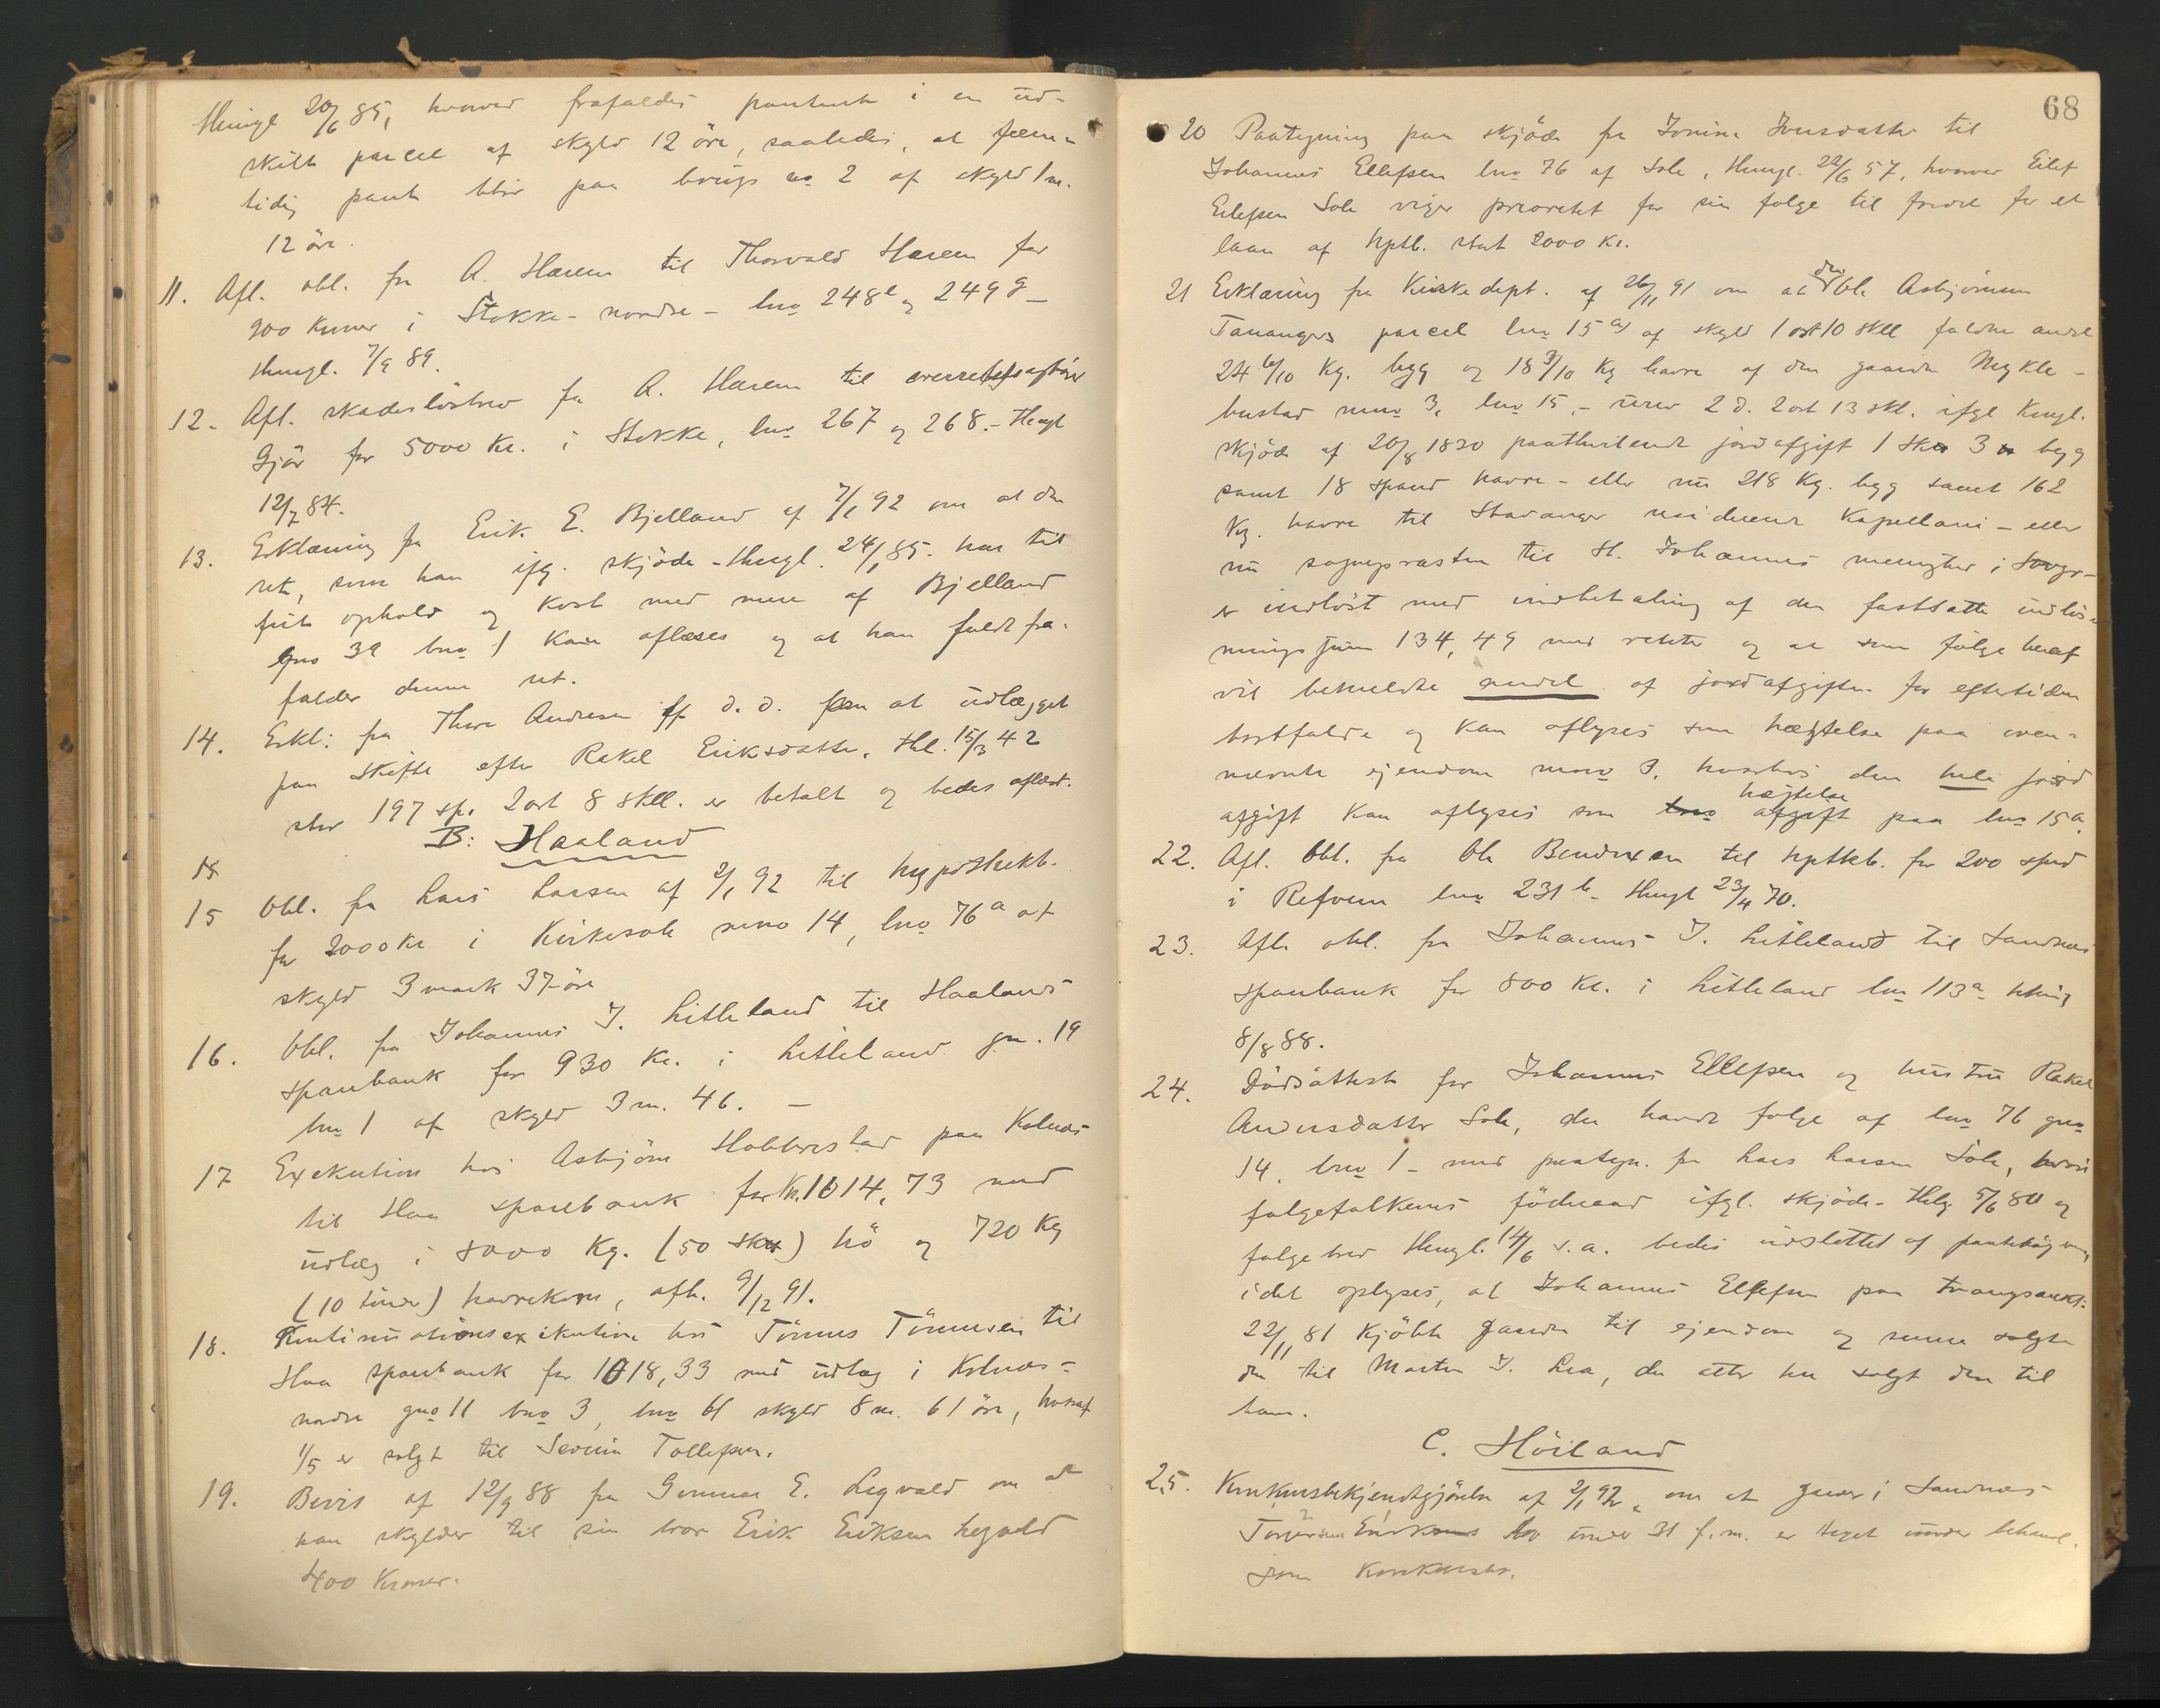 thingl 20/6 85, hvorved frafaldes panteret i en ud-
skilt parcel af skyld 12 öre, saaledes, at frem-
tidig pant blir paa brugs no 2 af skyld 1 m.
12 öre.
11. Afl. obl. fra A. Haarem til Thorvald Haarem for
900 Kroner i Stokke - nordre - lno 248 e og 249 g -
thingl. 7/9 89.
12. Afl. skadeslösbrev fra A. Haarem til overretssagförer
Gjör for 5000 Kr. i Stokke, lno 267 og 268. - thingl
12/7 84.
13. Erklæring fra Erik E. Bjelland af 7/1 92 om at den
ret, som han ifg. skjöde - thingl. 24/1 85. har til
frit ophold og Kost med mere af Bjelland
gno 39 bno 1 Kan aflæses og at han fuldt fra-
falder denne ret.
14. Erkl: fra Thore Andresen af d. d. om at udlægget
paa Skifte efter Rakel Eriksdatter, thl. 15/3 42
stor 197 sp. 2 ort 8 skll. er betalt og bedes aflæst.
B: Haaland
15 Obl. fra Lars Larsen af 2/1 92 til hypothekb.
for 2000 Kr i Kirkesole mno 14, lno 76 a af
skyld 3 mark 37 öre
16. Obl. fra Johannes J. Litleland til Haalands
sparebank for 930 Kr. i Litleland gn. 19
bno 1 af skyld 3 m. 46. -
17 Exekution hos Asbjörn Hobberstad paa Kolnæs
til Haa sparebank for Kr. 1014,73 med
udlæg i 8000 Kg. (50 ) hö og 720 Kg
(10 tönder) havrekorn, afh. 9/12 91.
18. Kontinuationsexekution hos Tönnes Tönnesen til
Haa sparebank for 1018,33 med udlæg i Kolnæs -
nordre gno 11 bno 3, lno 61 skyld 8 m. 61 öre, hvoraf
1/5 er solgt til Severin Tollefsen.
19. Bevis af 12/9 88 fra Gunnar E.Ligvald om at
han skylder til sin bror Erik Eriksen Ligvald
400 Kroner.
68
20 Paategning paa skjöde fra Jonine Jonsdatter til
Johannes Ellefsen lno 76 af Sole, thingl. 22/6 57, hvorved Eilef
Eilefsen Sole viger prioritet for sin folge til fordel for et
laan af hptb. stort 2000 Kr.
21 Erklæring fra Kirkedept. af 26/11 91 om at den Ole Asbjörnsen
Tanangers parcel lno 15 a) af skyld 1 ort 10 skll faldne andel
24 6/10 Kg. byg og 18 3/10 Kg havre af den gaarden Mykle-
bustad mno 3, lno 15, - urev 2 d. 2 ort 13 skl. ifgl Kngl.
skjöde af 20/8 1830 paahvilende jordafgift 1 3 byg
samt 18 spand havre - eller nu 218 Kg. byg samt 162
Kg. havre til Stavanger residerende Kapellani - eller
nu sogneprasten til St. Johannes menighed i Stvgr -
er indlöst med indbetaling af den fastsatte indlös-
ningssum 134,49 med renter og at som fölge heraf
vil bemeldte andel af jordafgiften for eftertiden
bortfalde og Kan aflyses som hæftelse paa oven-
nævnte ejendom mno 3, hvorhos den hele jord
afgift Kan aflyses som hæftelse paa lno 15 a.
22. Afl. Obl. fra Ole Bendixsen til hptkb. for 200 spd
i Refvem lno 231 b - thingl 23/4 70.
23. Afl. obl. fra Johannes J. Litleland til Sandnæs
sparebank for 800 Kr. i Litleland lno 113 a - thing
8/8 88.
24. Dödsattest for Johannes Ellefsen og hustru Rakel
Andersdatter Sole, der havde folge af lno 76 gno
14, bno 1 - med paategn. fra Lars Larsen Sole, hvori
folgefolkenes föderaad ifgl. skjöde - thlg. 5/6 80 og
folgebrev thingl. 14/6 s. a. bedes udslettet af pantebögerne,
idet oplyses, at Johannes Ellefsen paa tvangsaukt:
22/11 81 Kjöbte gaarden til ejendom og senere solgte
den til Morten J. Lea, der atter har solgt den til
ham.
C. Höiland
25. Konkursbekjendtgjörelse af 2/1 92, om at garver i Sandnæs -
bo under 31 f. m. er taget under behandl.
som Konkursbo.